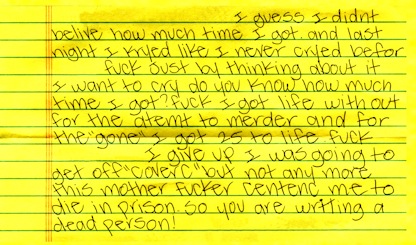 I guess I didnt
belive how much time I got. and last
night I kryed like I never cryed befor
fuck Just by thinking about it
I want to cry do you know how much
time I got? fuck I got life with out
for the atemt to merder and for
the "gone" I got 25 to life fuck
I give up I was going to
get off "Calerc" but not any more
this mother fucker centenc me to
die in prison. so you are writing a
dead person!